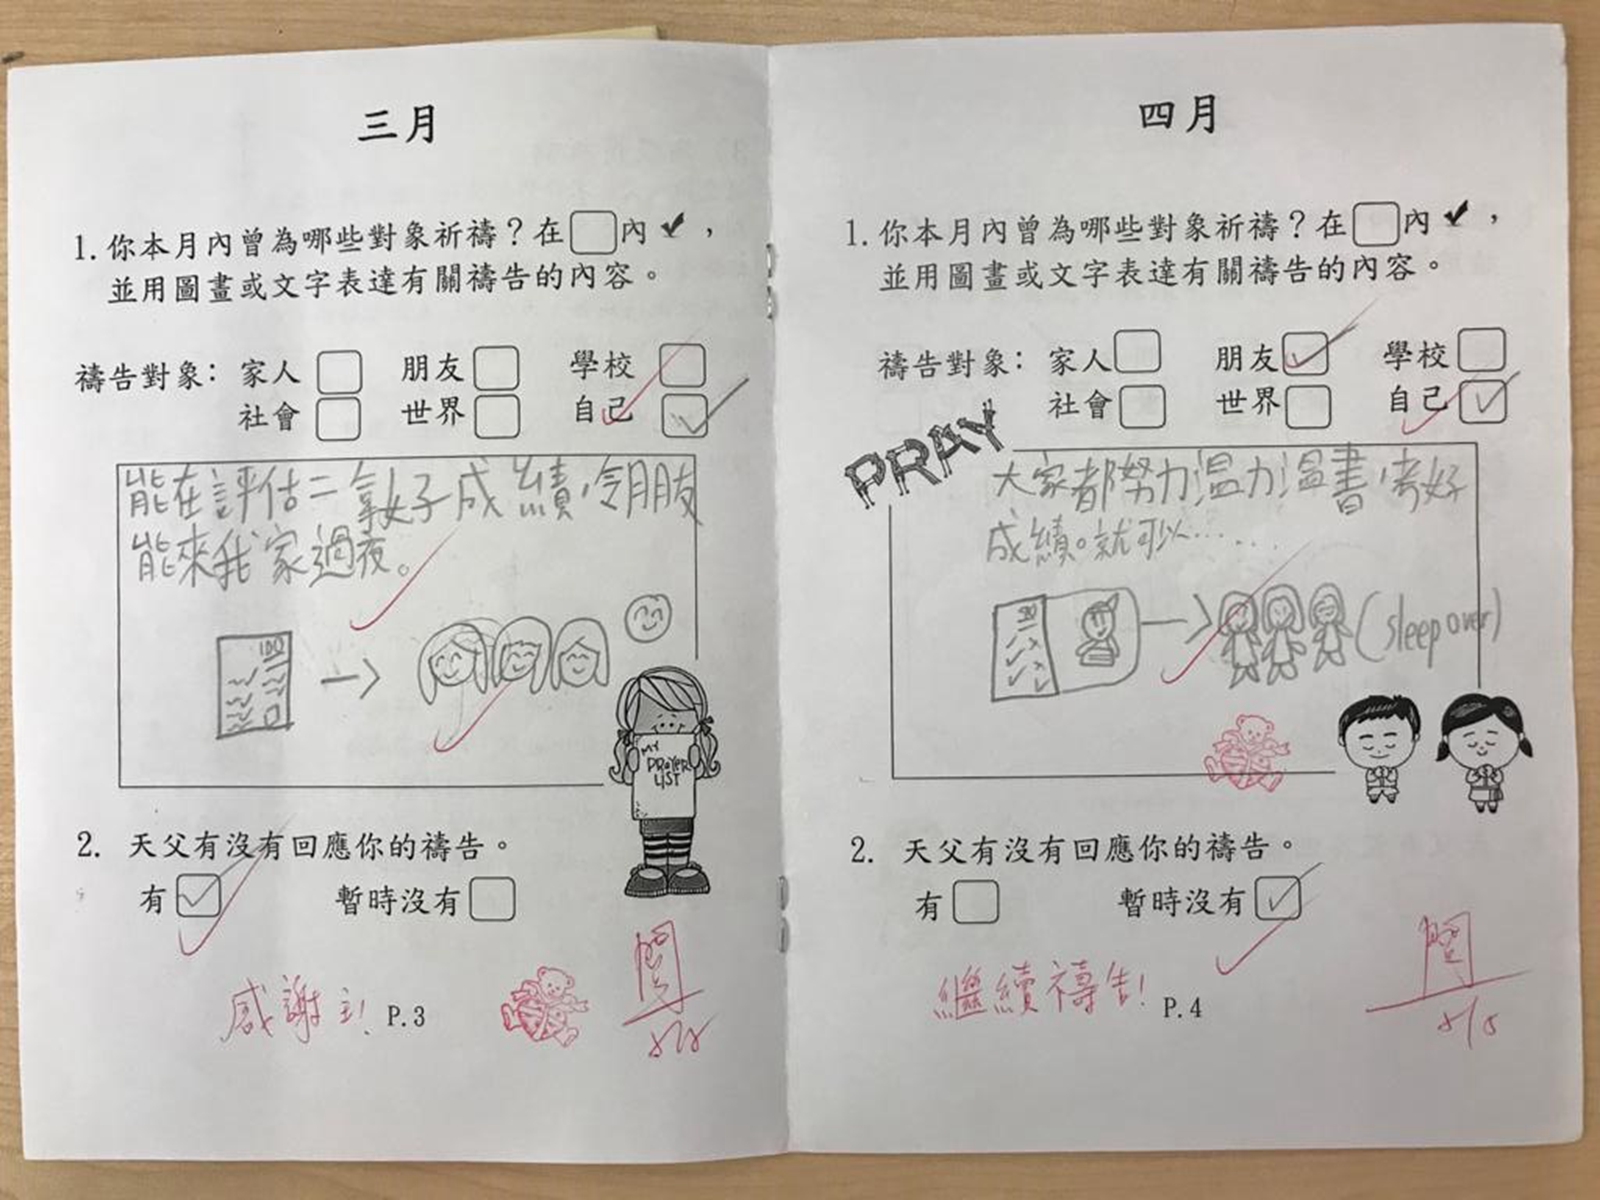 三月
1.你本月內曾為哪些對象祈禱？在□內✔，
並用圖畫或文字表達有關禱告的內容。
禱告對象：家人□ 朋友□ 學校□
社會□ 世界□ 自己☑
能在評估二拿好成績，令朋友
能來我家過夜。
100
MY
PRAYER
LIST
2. 天父有沒有回應你的禱告。
有☑ 暫時沒有□
感謝主！ P.3
閱
四月
1.你本月內曾為哪些對象祈禱？在□內✔，
並用圖畫或文字表達有關禱告的內容。
禱告對象：家人□ 朋友☑ 學校□
社會□ 世界□ 自己☑
PRAY
大家都努力溫力溫書，考好
成績。就可以......
(sleep over)
2. 天父有沒有回應你的禱告。
有□ 暫時沒有☑
繼續禱告！ P.4
閱